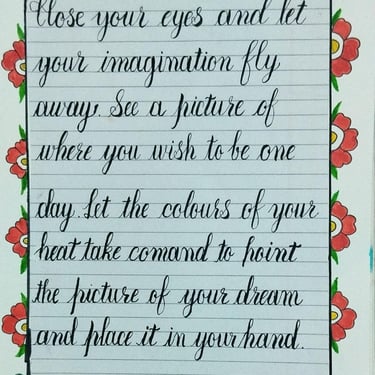 Close your eyes and let
your imagination fly
away. See a picture of
where you wish to be one
day. Let the colours of your
heat take comand to point
the picture of your dream
and place it in your hand.